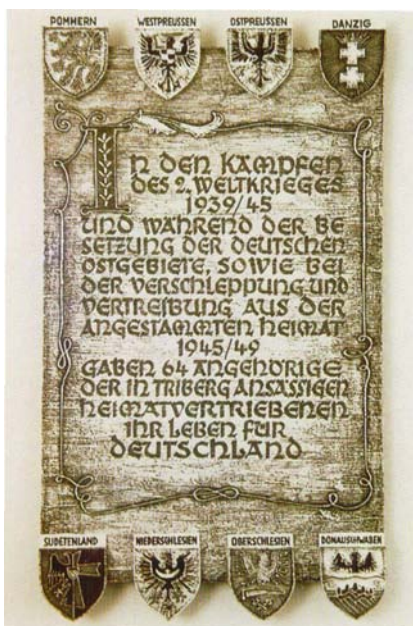 POMMERN WESTPREUSSEN OSTPREUSSEN DANZIG
IN DEN KÄMPFEN
DES 2. WELTKRIEGES
1939/45
UND WÄHREND DER BE
SETZUNG DER DEUTSCHEN
OSTGEBIETE, SOWIE BEI
DER VERSCHLEPPUNG UND
VERTREIBUNG AUS DER
ANGESTAMMTEN HEIMAT
1945/49
GABEN 64 ANGEHÖRIGE
DER IN TRIBERG ANSÄSSIGEN
HEIMATVERTRIEBENEN
IHR LEBEN FÜR
DEUTSCHLAND
SUDETENLAND NIEDERSCHLESIEN OBERSCHLESIEN DONAUSCHWABEN